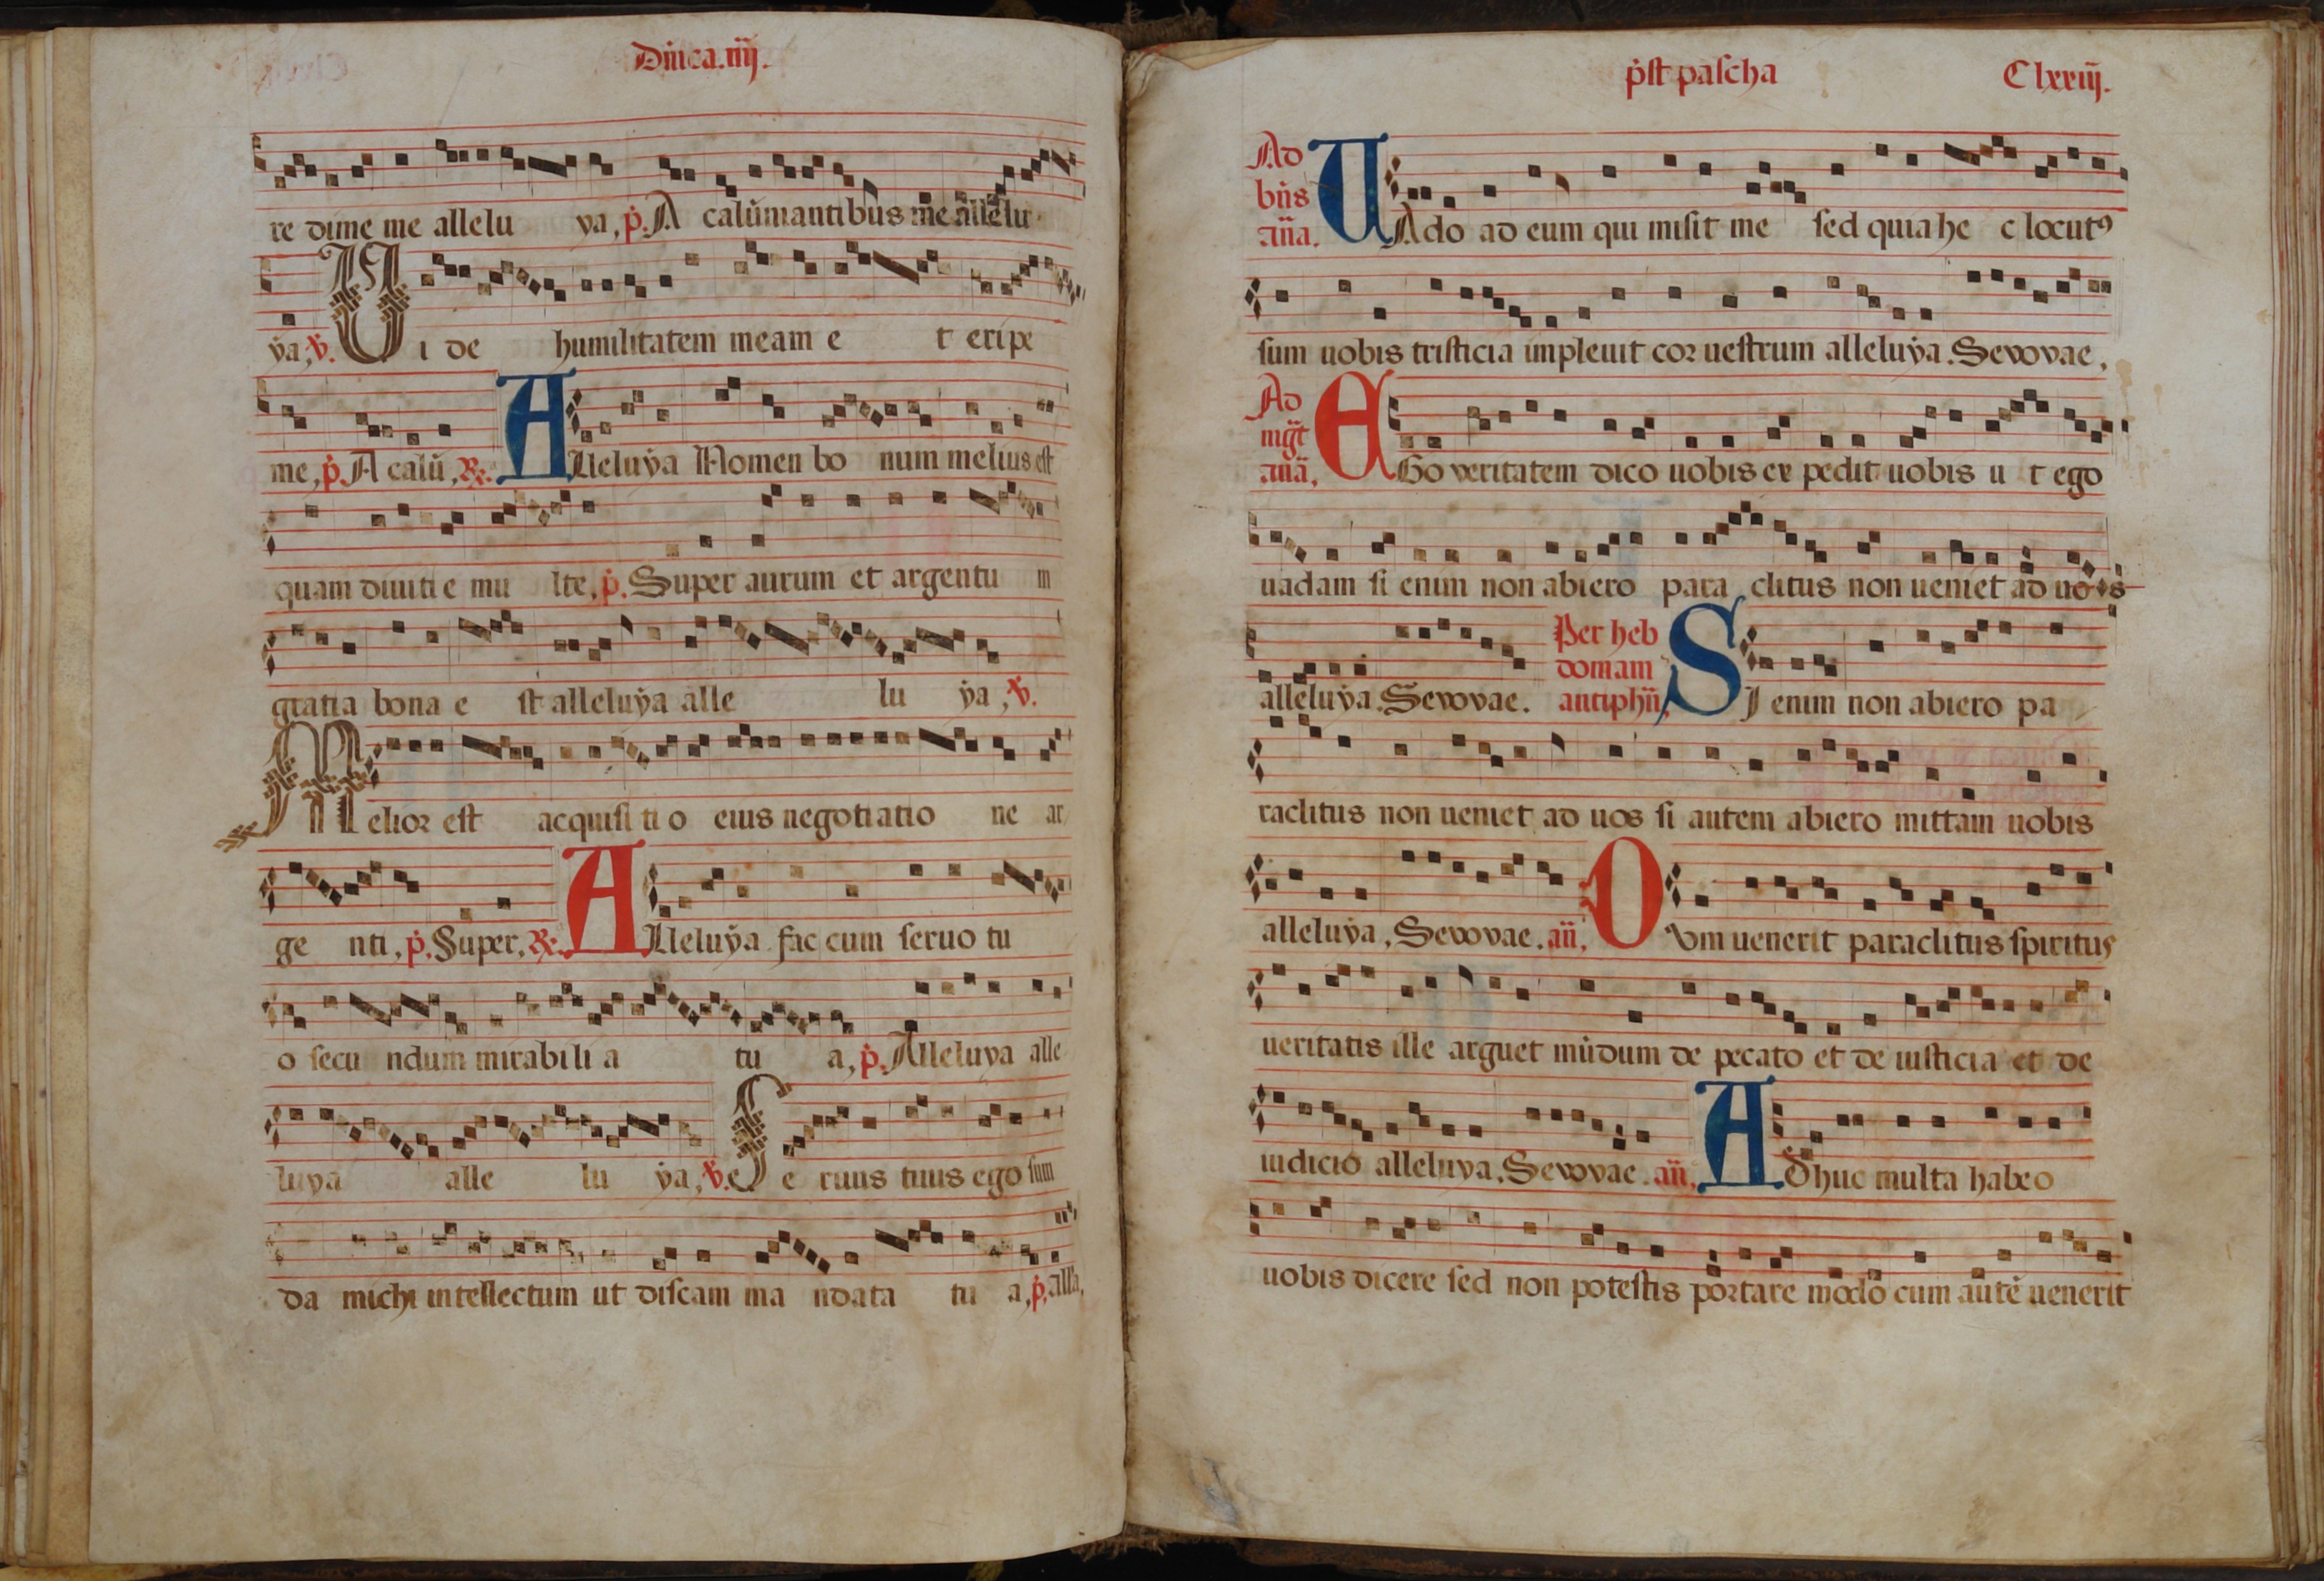 Dñica.iiij.
re dime me allelu ya, p. A calũmniantibus me allelu
ya, v. Vi de humilitatem meam e t eripe
me, p. A calũ, R. Alleluya Nomen bo num melius est
quam diuiti e mu lte, p. Super aurum et argentu m
gratia bona e st alleluya alle lu ya, v.
Melior est acquisi ti o eius negotiatio ne ar
ge nti, p. Super, R. Alleluya fac cum seruo tu
o secu ndum mirabili a tu a, p. Alleluya alle
luya alle lu ya, v. Se ruus tuus ego sum
da michi intellectum ut discam ma ndata tu a, p. all'a.
pꝰst pascha Clxxiij.
Ad bñs añа. VAdo ad eum qui misit me sed quia he c locutꝰ
sum uobis tristicia impleuit cor uestrum alleluya. Seuouae.
Ad mgt̃ anã. EGo veritatem dico uobis ex pedit uobis u t ego
uadam si enim non abiero para clitus non ueniet ad uo s
alleluya. Seuouae. Per heb domam antiphñ, SI enim non abiero pa
raclitus non ueniet ad uos si autem abiero mittam uobis
alleluya, Seuouae. añ, Cum uenerit paraclitus spiritus
ueritatis ille arguet mũdum de pecato et de iusticia et de
iudicio alleluya. Seuouae. añ, ADhuc multa habeo
uobis dicere sed non potestis portare modo cum autẽ uenerit